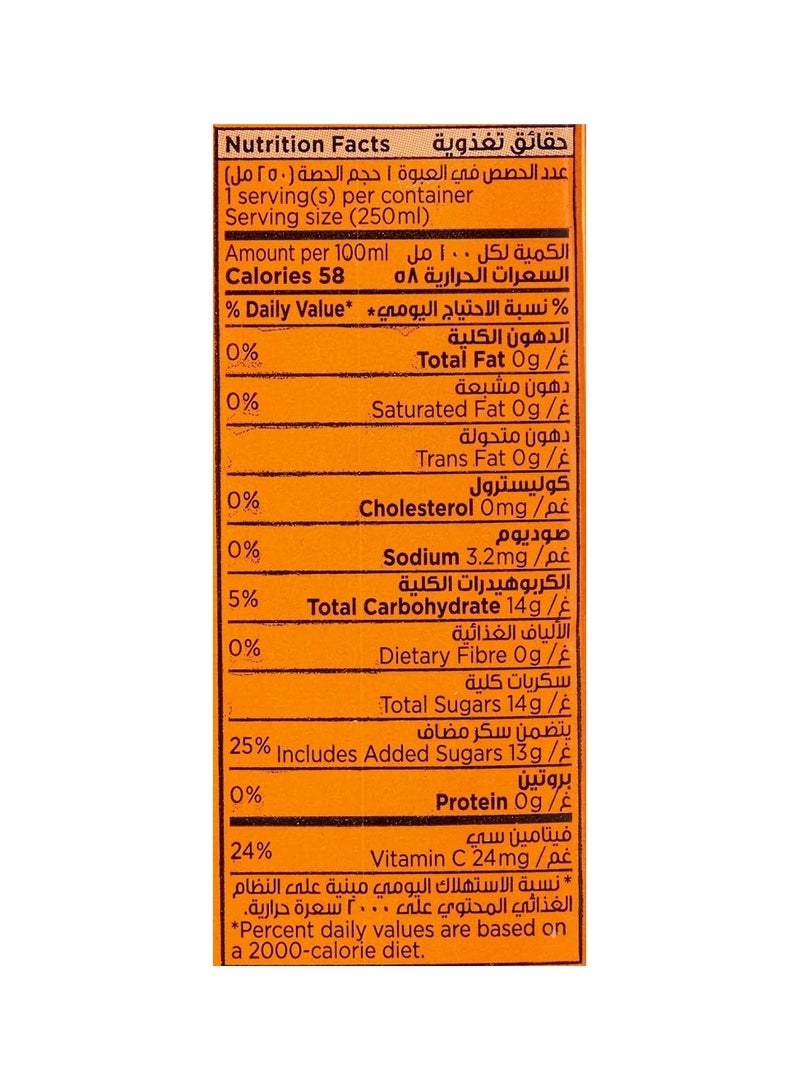 Nutrition Facts حقائق تغذوية
عدد الحصص في العبوة ١ حجم الحصة (٢٥٠ مل)
1 serving(s) per container
Serving size (250ml)
Amount per 100ml الكمية لكل ١٠٠ مل
Calories 58 السعرات الحرارية ٥٨
% Daily Value* % نسبة الاحتياج اليومي*
الدهون الكلية
0% Total Fat 0g /غ
دهون مشبعة
0% Saturated Fat 0g /غ
دهون متحولة
Trans Fat 0g /غ
كوليسترول
0% Cholesterol 0mg /غم
صوديوم
0% Sodium 3.2mg /غم
الكربوهيدرات الكلية
5% Total Carbohydrate 14g /غ
الألياف الغذائية
0% Dietary Fibre 0g /غ
سكريات كلية
Total Sugars 14g /غ
يتضمن سكر مضاف
25% Includes Added Sugars 13g /غ
بروتين
0% Protein 0g /غ
فيتامين سي
24% Vitamin C 24mg /غم
* نسبة الاستهلاك اليومي مبنية على النظام
الغذائي المحتوي على ٢٠٠٠ سعرة حرارية.
*Percent daily values are based on
a 2000-calorie diet.